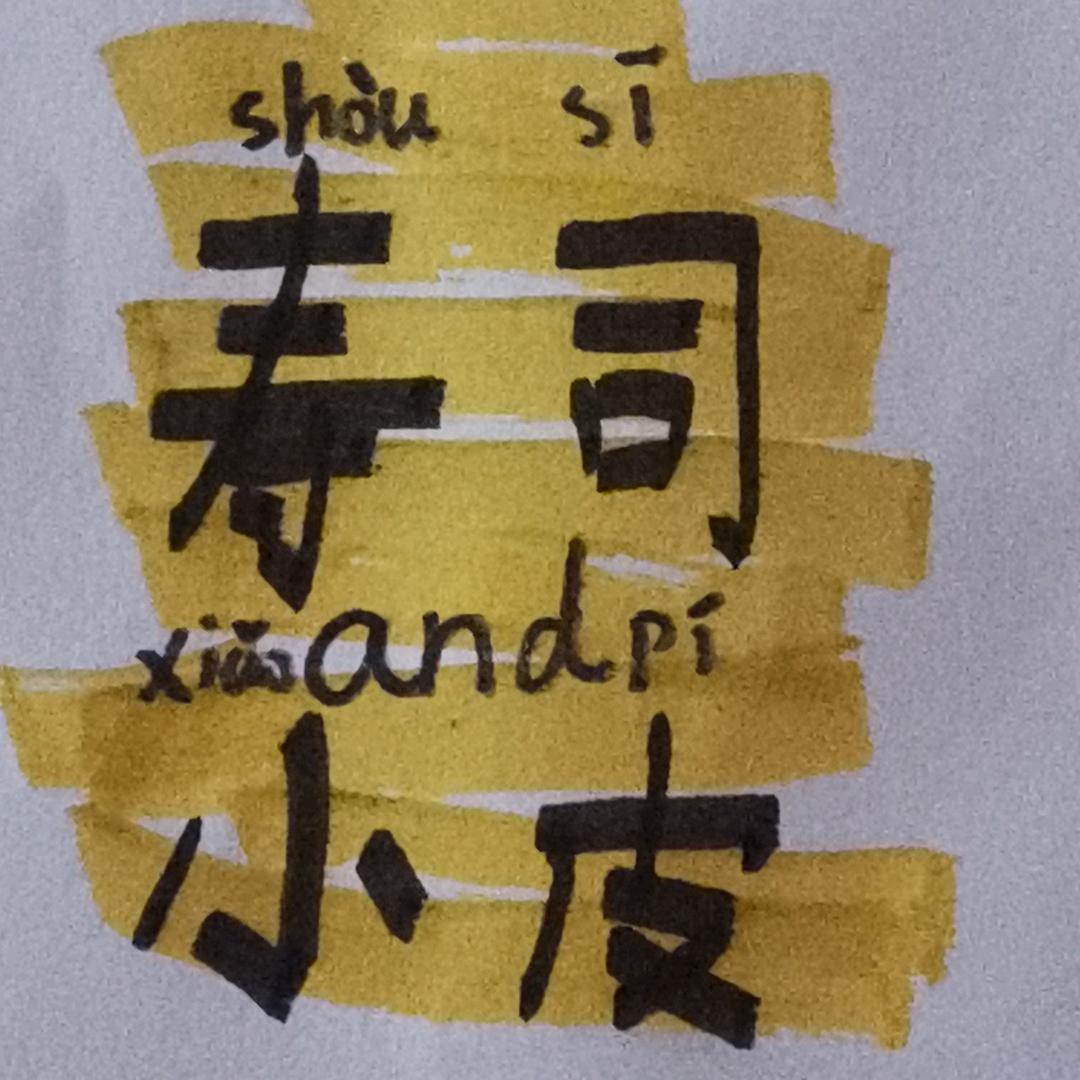 shòu sī
寿司
xiǎo and pí
小皮